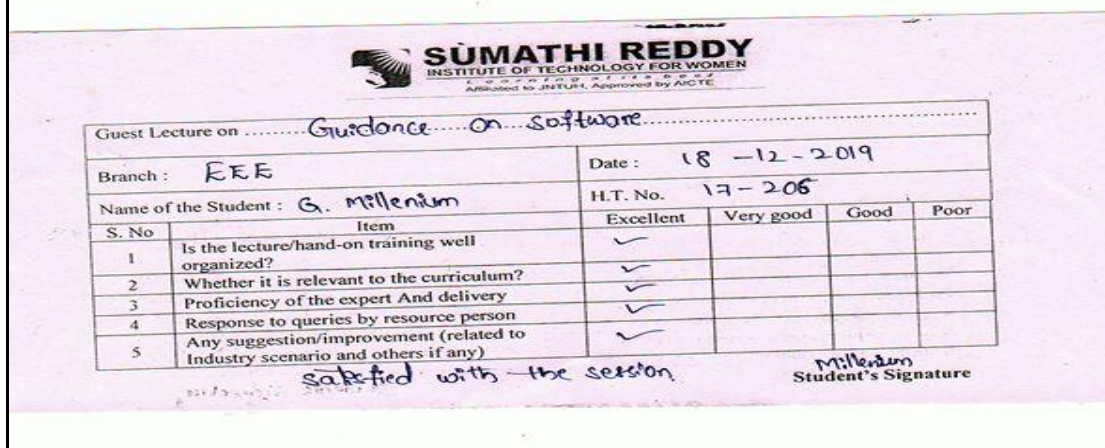 SUMATHI REDDY
INSTITUTE OF TECHNOLOGY FOR WOMEN
Learning at its best
Affiliated to JNTUH, Approved by AICTE
Guest Lecture on .........Guidance on software.........
Branch : EEE Date : 18 -12-2019
Name of the Student : G. Millenium H.T. No. 17-206
S. No Item Excellent Very good Good Poor
1 Is the lecture/hand-on training well
organized? ✓
2 Whether it is relevant to the curriculum? ✓
3 Proficiency of the expert And delivery ✓
4 Response to queries by resource person ✓
5 Any suggestion/improvement (related to
Industry scenario and others if any) ✓
satisfied with the session
Millenium
Student's Signature